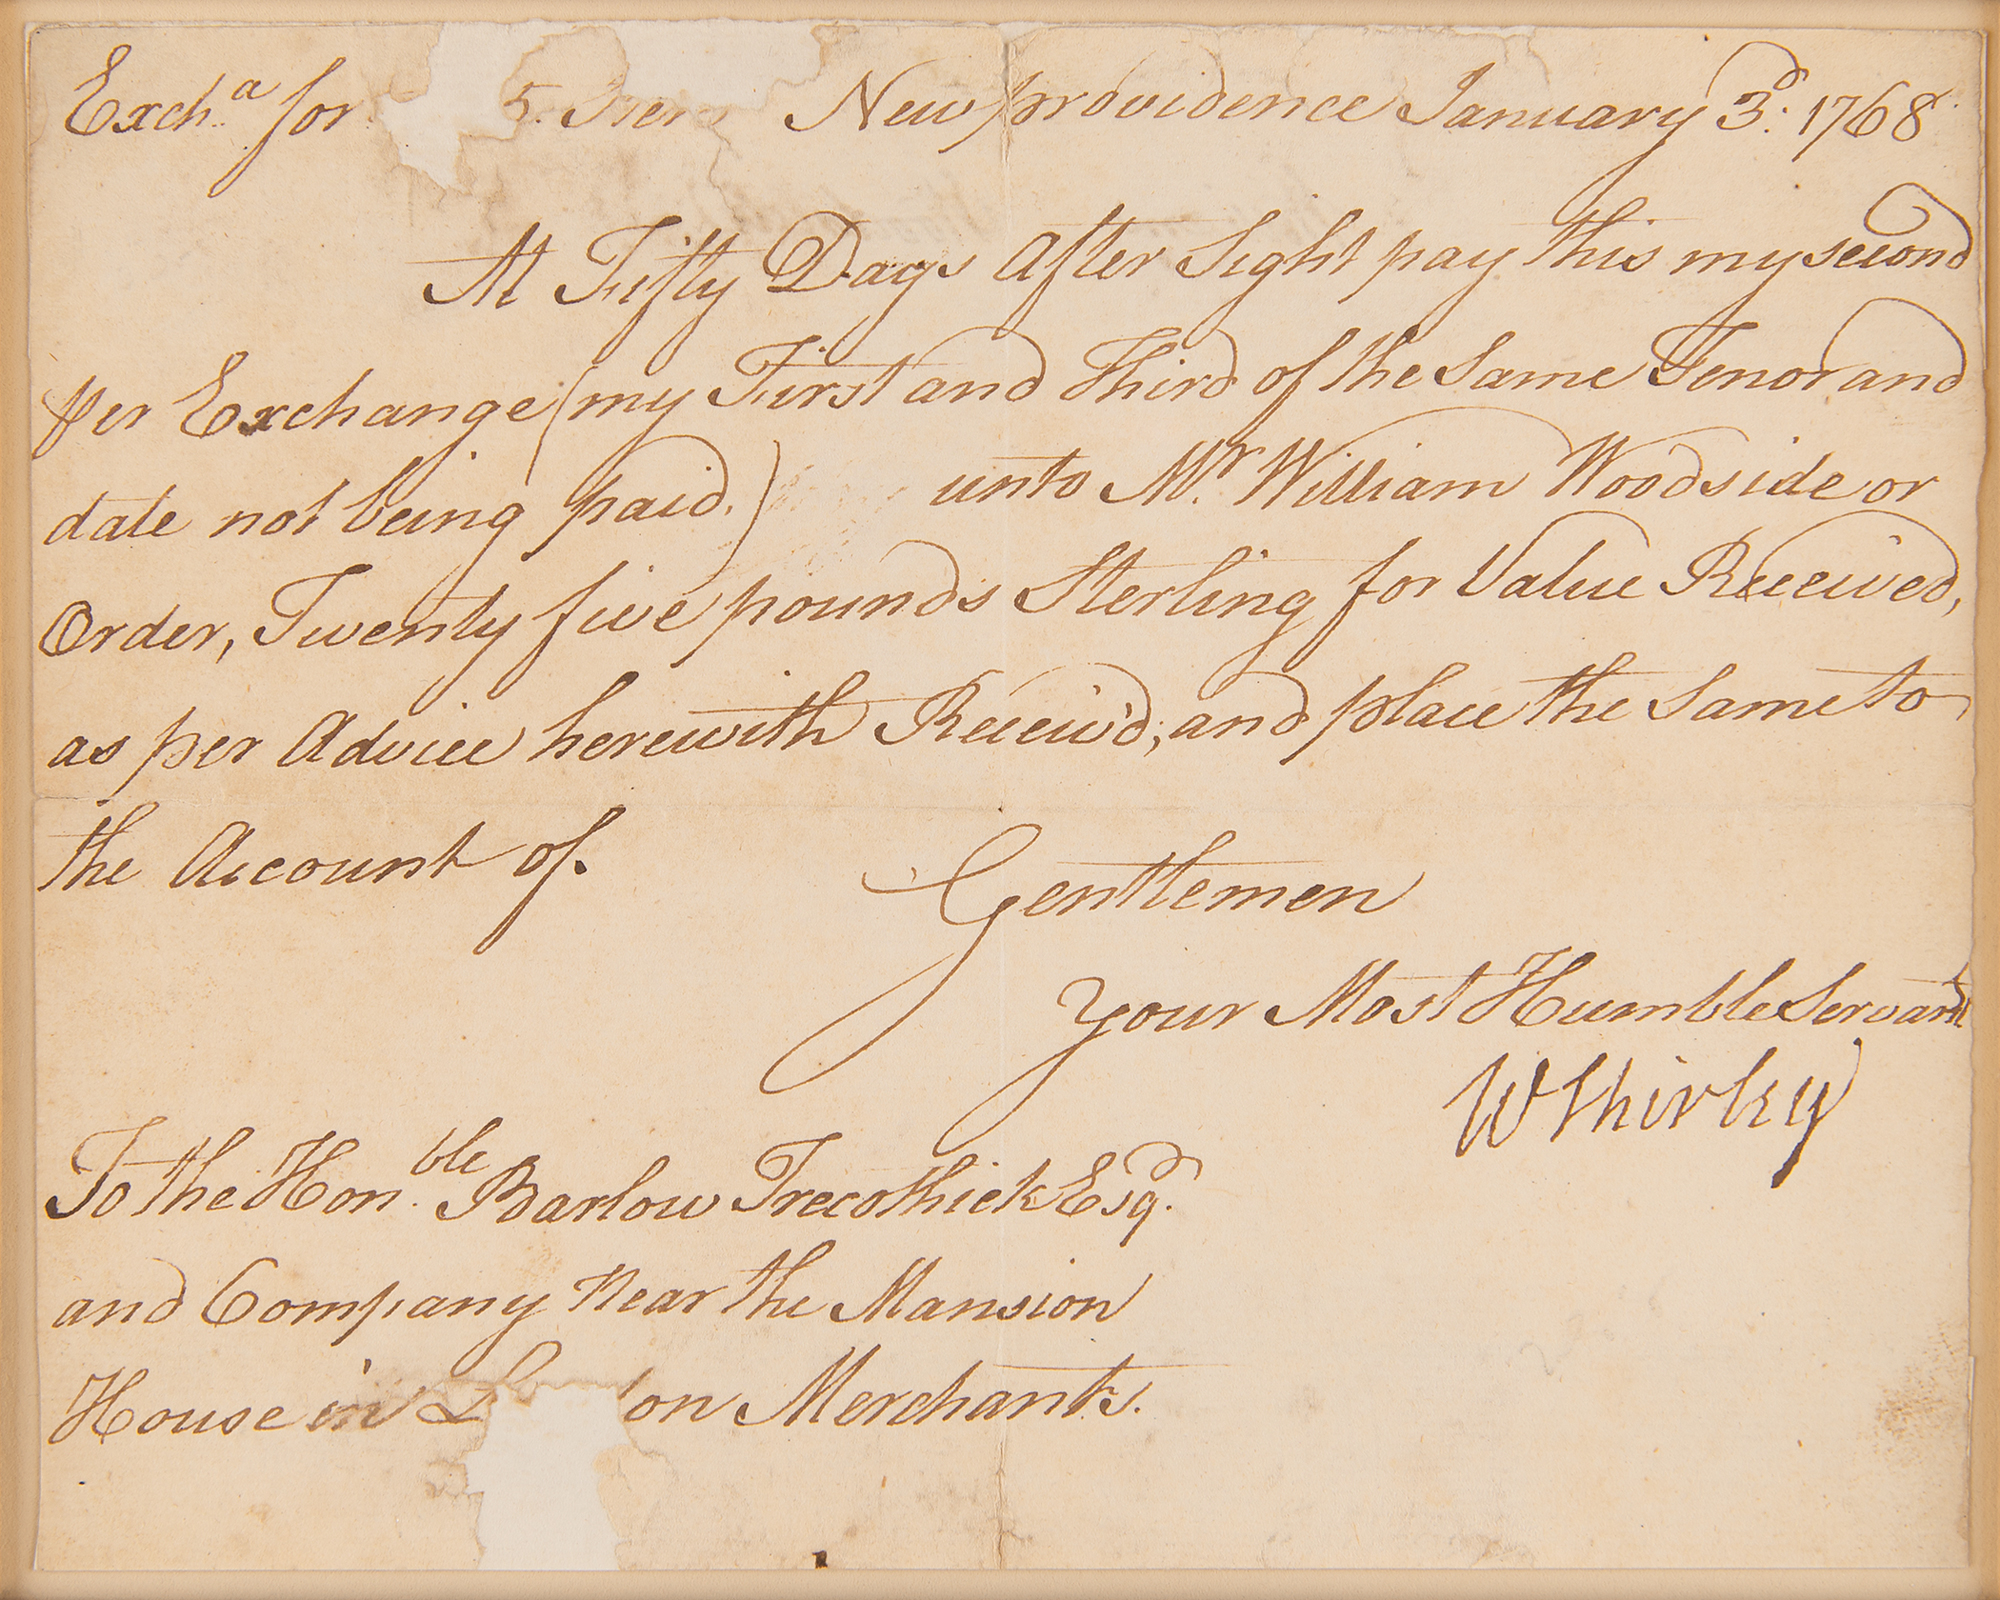 Exch.a for 5 New providence January 3d: 1768
At Fifty Days After Sight pay this my second
Per Exchange (my First and Third of the Same Tenor and
date not being paid.) unto Mr. William Woodside or
Order, Twenty five pounds Sterling for Value Received,
as per Advice herewith Receiv'd, and place the Same to
the Account of.
Gentlemen
Your Most Humble Servant
WShirley
To the Hon.ble Barlow Trecothick Esqr.
and Company Near the Mansion
House in L on Merchants.